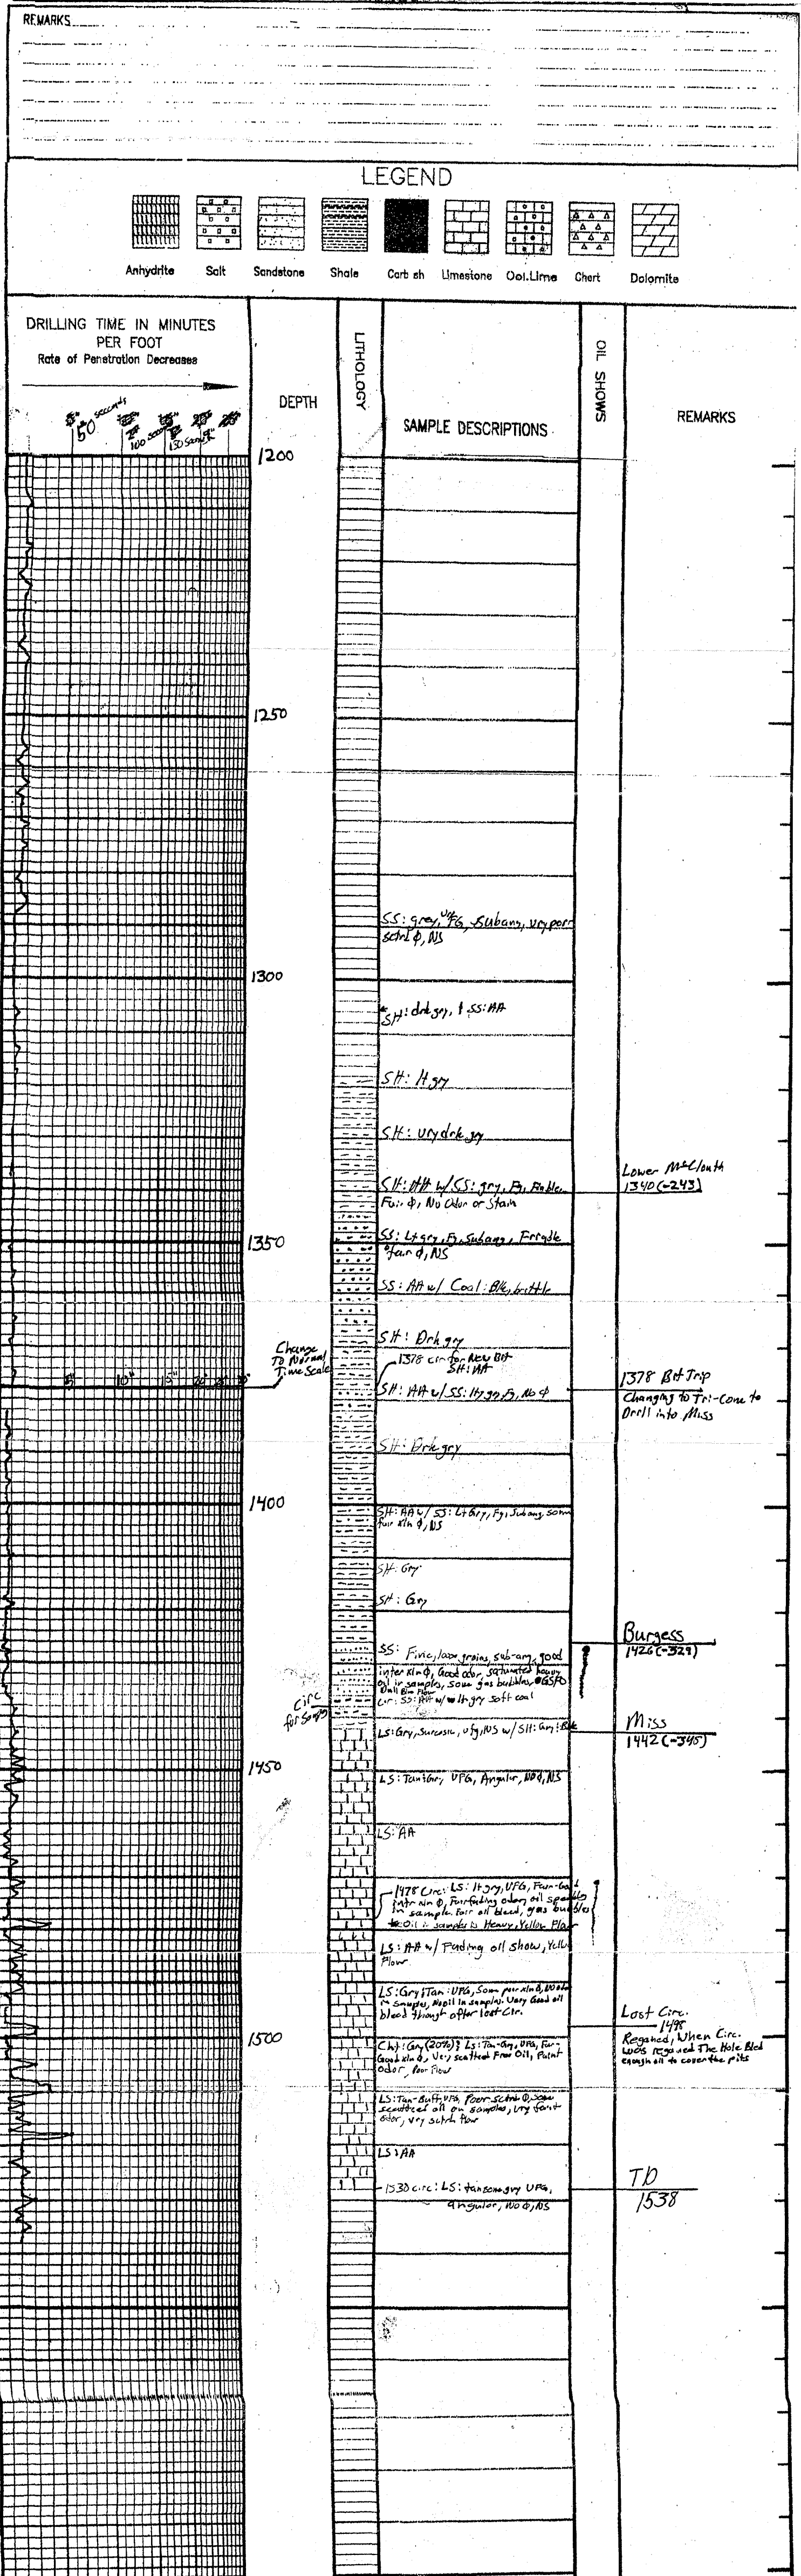 REMARKS
LEGEND
Anhydrite Salt Sandstone Shale Carb sh Limestone Ool.Lime Chert Dolomite
DRILLING TIME IN MINUTES
PER FOOT
Rate of Penetration Decreases
DEPTH
LITHOLOGY
SAMPLE DESCRIPTIONS
OIL SHOWS
REMARKS
50 seconds
100 seconds
1200
1250
SS: grey, VFG, Subang, vry poor
sctrd φ, NS
1300
SH: drk gry, + SS: AA
SH: lt gry
SH: vry drk gry
Lower McClouth
1340 (-243)
SH: AA w/ SS: gry, Fg, Friable,
Fair φ, No Odor or Stain
1350
SS: Lt gry, Fg, Subang, Friable
fair φ, NS
SS: AA w/ Coal: Blk, brittle
SH: Drk gry
Change
To Normal
Time Scale
1378 cir for New Bit
SH: AA
5" 10" 15" 20" 25" 30"
SH: AA w/ SS: lt gy, Fg, No φ
1378 Bit Trip
Changing to Tri-Cone to
Drill into Miss
SH: Drk gry
1400
SH: AA w/ SS: Lt Gry, Fg, Subang, som
fair xln φ, NS
SH: Gry
SH: Gry
Burgess
1426 (-329)
SS: Fine, loose grains, sub-ang, good
inter xln φ, Good odor, saturated heavy
oil in samples, some gas bubbles, GSFO
Dull Flow
cir: SS: AA w/ lt gry soft coal
Circ
for Samp
Miss
1442 (-345)
LS: Gry, Sucrosic, vfg, NS w/ SH: Gry: Blk
1450
LS: Tan: Gry, VFG, Angular, NO φ, NS
LS: AA
1478 Circ: LS: lt gry, VFG, Fair-Good
intr xln φ, Fair fading odor, oil specks
in sample. Fair oil bleed, gas bubbles
to Oil in samples is Heavy, Yellow Flour
LS: AA w/ Fading oil show, Yello
Flour
LS: Gry: Tan: VFG, Som poor xln φ, NO odor
in samples, No oil in samples. Very Good oil
bleed through after lost Cir.
Lost Circ.
1498
Regained, When Circ.
was regained The Hole Bled
enough oil to cover the pits
1500
Cht: Gry (20%) & LS: Tan-Gry, VFG, Fair-
Good xln φ, Very scatted Free Oil, Faint
Odor, Poor Flow
LS: Tan-Buff, VFG, Poor sctrd φ, some
scattered oil on samples, vry faint
odor, vry sctrd flow
LS: AA
1530 circ: LS: tan some gry VFG,
angular, NO φ, NS
TD
1538